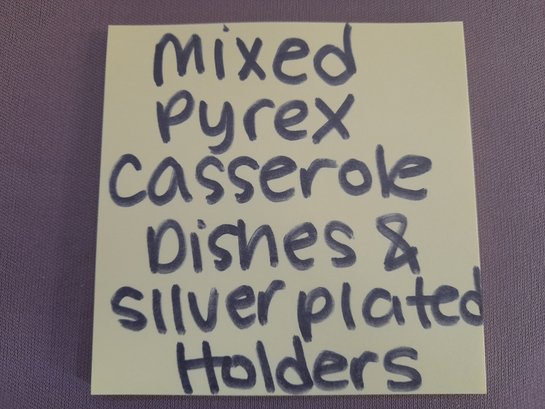 Mixed
Pyrex
Casserole
Dishes &
Silver plated
Holders